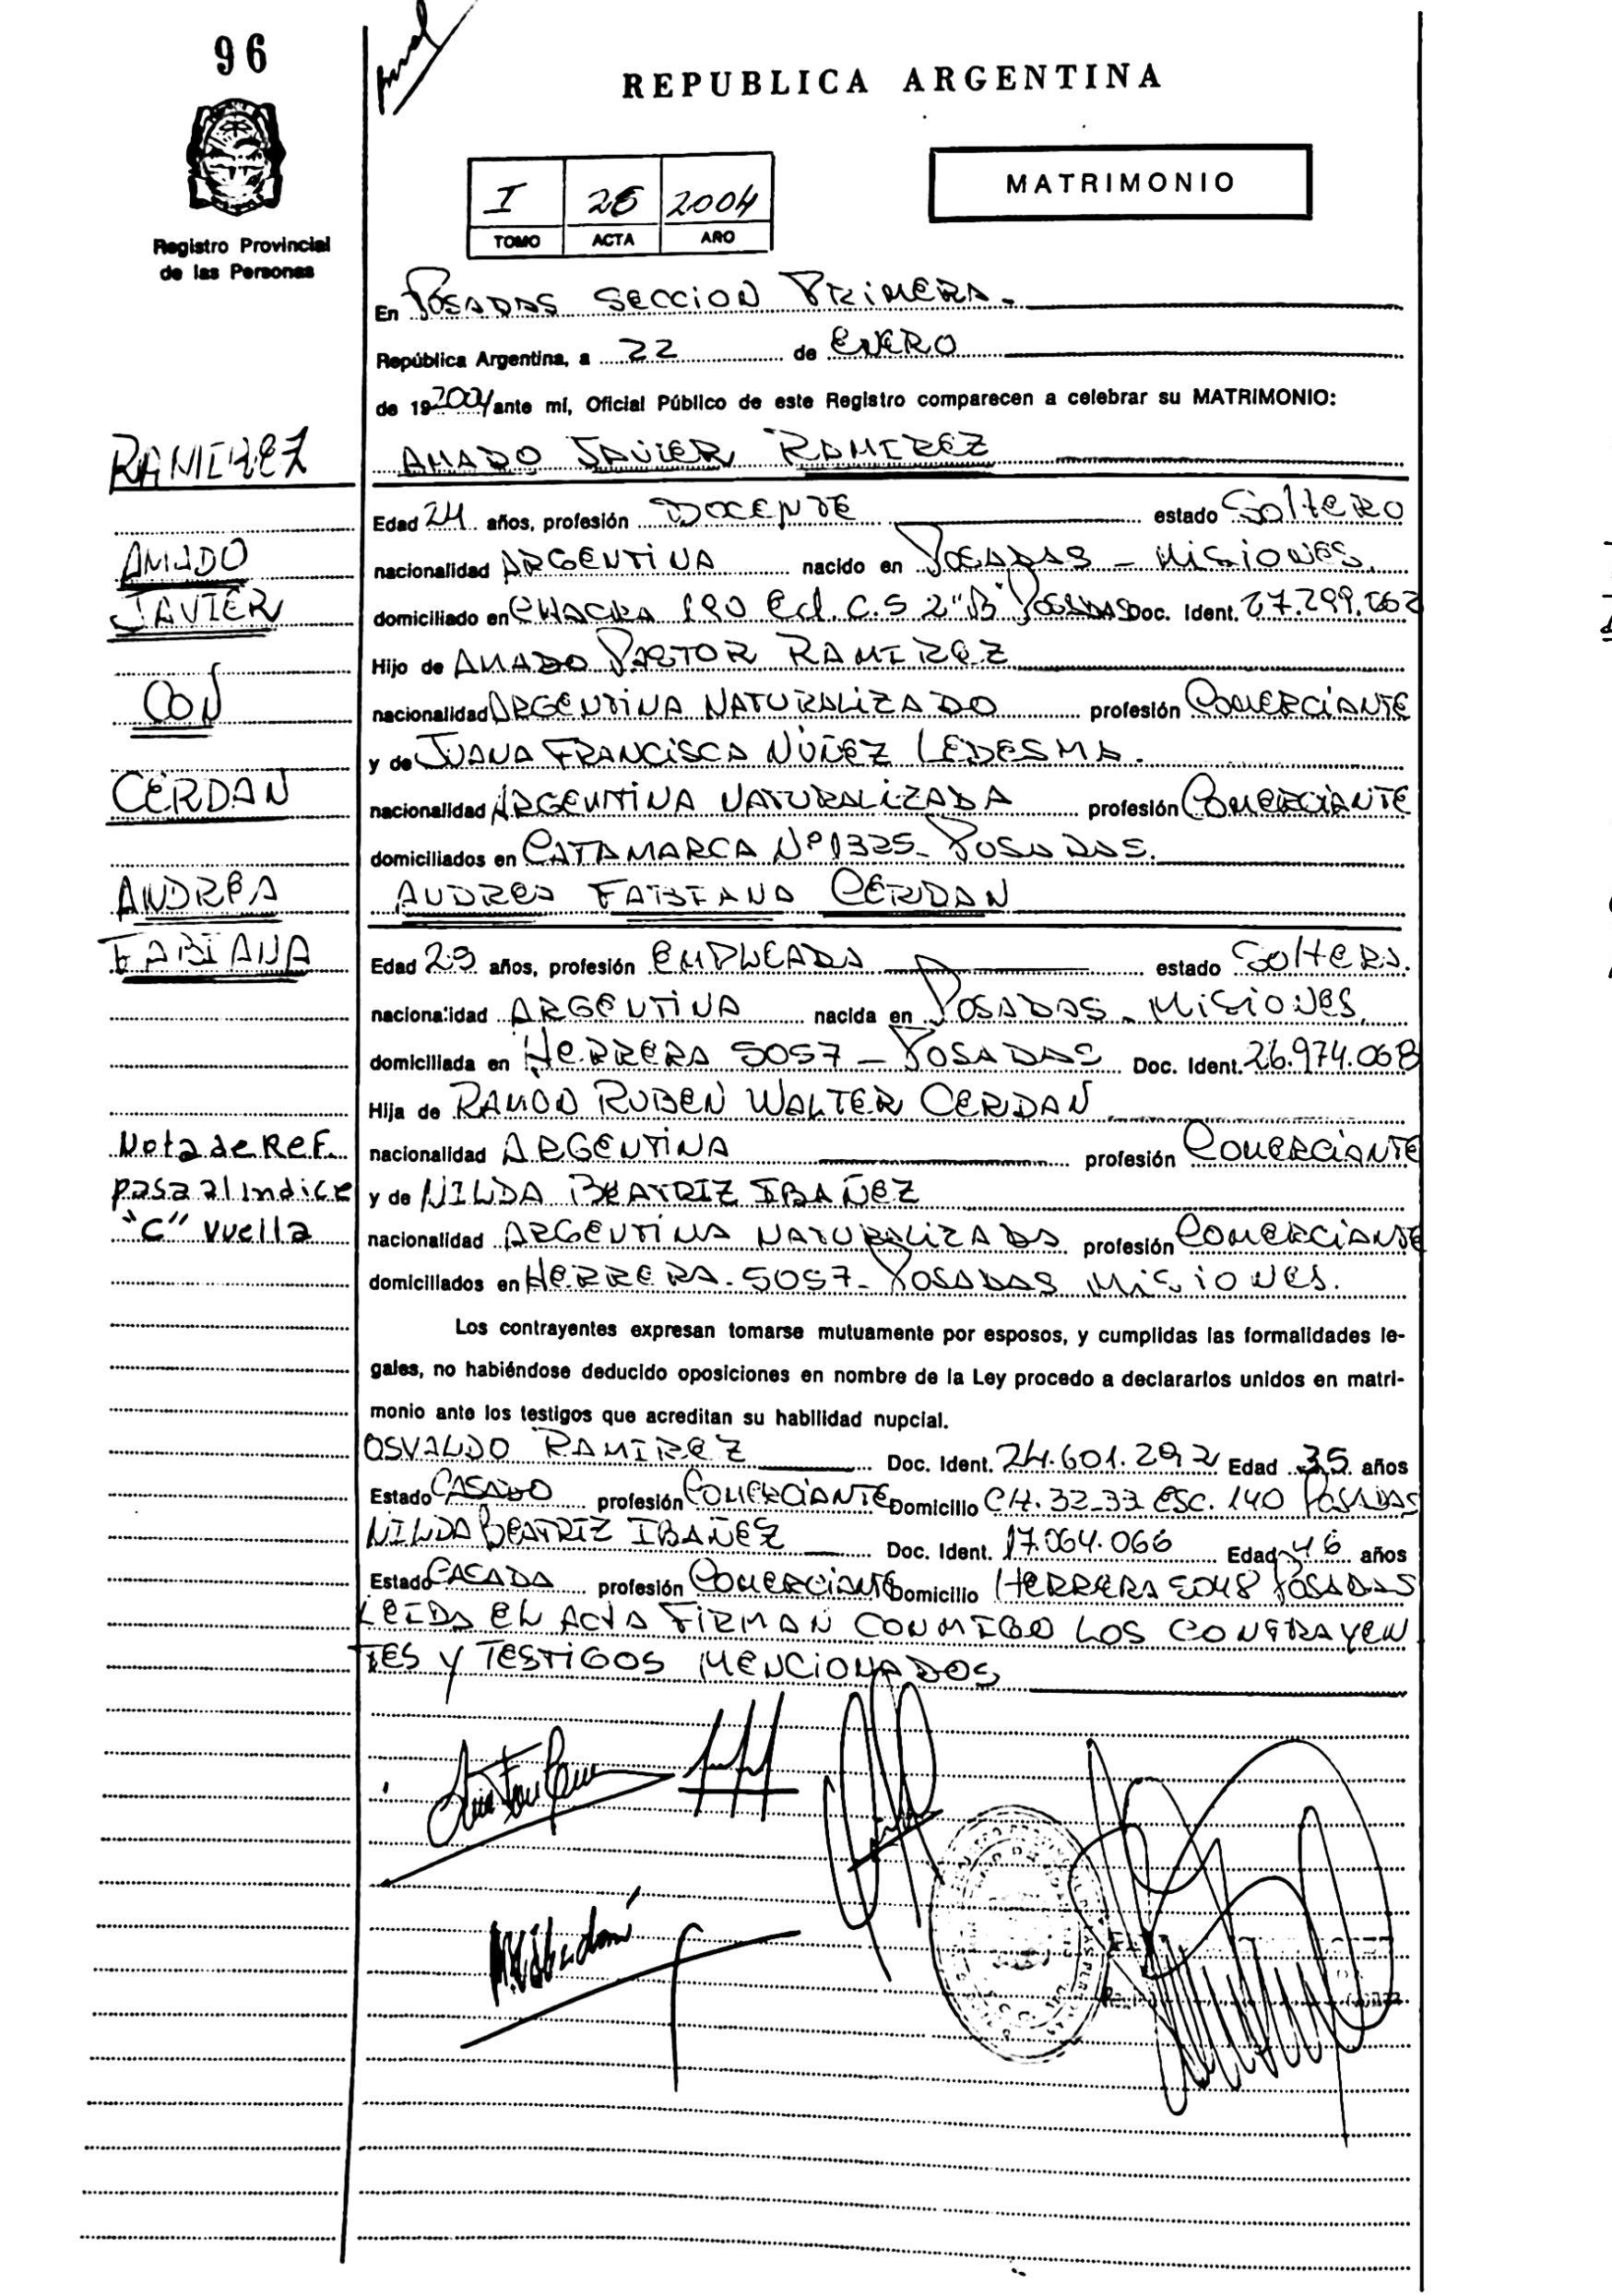 96
REPUBLICA ARGENTINA
MATRIMONIO
I 26 2004
TOMO ACTA AÑO
Registro Provincial
de las Personas
En POSADAS SECCION PRIMERA.
República Argentina, a 22 de ENERO
de 19 2004 ante mí, Oficial Público de este Registro comparecen a celebrar su MATRIMONIO:
RAMIREZ
AMADO JAVIER RAMIREZ
Edad 24 años, profesión DOCENTE estado SolTERO
AMADO
nacionalidad ARGENTINA nacido en POSADAS - MISIONES.
JAVIER
domiciliado en CHACRA 190 Ed. C.S 2 "B" POSADAS Doc. Ident. 27.299.062
Hijo de AMADO PASTOR RAMIREZ
CON
nacionalidad ARGENTINA NATURALIZADO profesión COMERCIANTE
y de JUANA FRANCISCA NUÑEZ LEDESMA.
CERDAN
nacionalidad ARGENTINA NATURALIZADA profesión COMERCIANTE
domiciliados en CATAMARCA Nº 1325- POSADAS.
ANDREA
ANDREA FABIANA CERDAN
FABIANA
Edad 25 años, profesión EMPLEADA estado SolTERA.
nacionalidad ARGENTINA nacida en POSADAS - MISIONES.
domiciliada en HERRERA 5057 - POSADAS Doc. Ident. 26.974.068
Hija de RAMÓN RUBEN WALTER CERDAN
Nota de Ref.
nacionalidad ARGENTINA profesión COMERCIANTE
pasa al indice
y de NILDA BEATRIZ IBAÑEZ
"C" vuelta
nacionalidad ARGENTINA NATURALIZADA profesión COMERCIANTE
domiciliados en HERRERA. 5057- POSADAS MISIONES.
Los contrayentes expresan tomarse mutuamente por esposos, y cumplidas las formalidades le-
gales, no habiéndose deducido oposiciones en nombre de la Ley procedo a declararlos unidos en matri-
monio ante los testigos que acreditan su habilidad nupcial.
OSVALDO RAMIREZ Doc. Ident. 24.601.292 Edad 35 años
Estado CASADO profesión COMERCIANTE Domicilio CH. 32-33 ESC. 140 POSADAS
NILDA BEATRIZ IBAÑEZ Doc. Ident. 17.064.066 Edad 46 años
Estado CASADA profesión COMERCIANTE Domicilio HERRERA 5048 POSADAS
LEIDA EL ACTA FIRMAN CONMIGO LOS CONTRAYEN
TES Y TESTIGOS MENCIONADOS